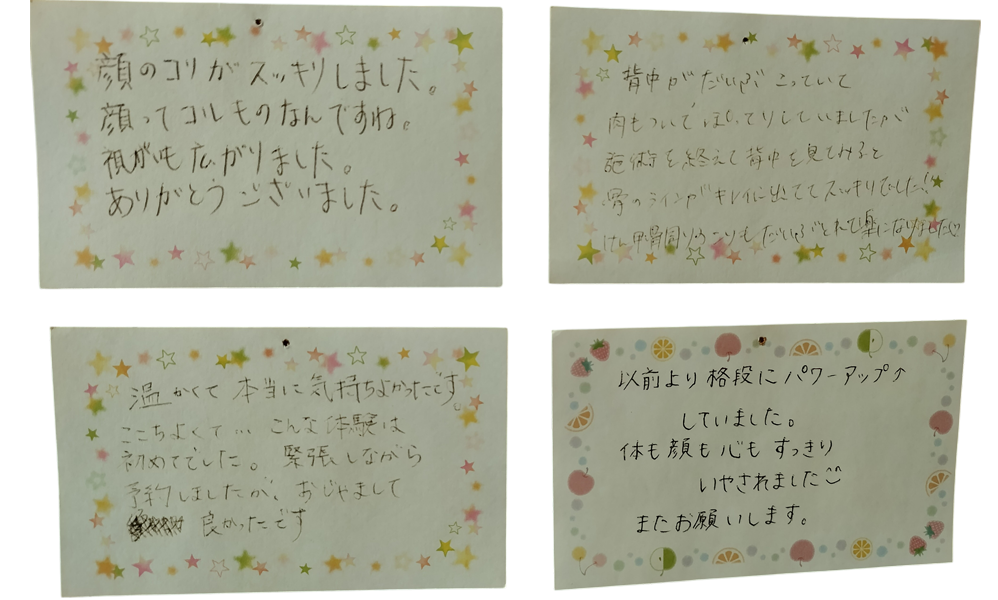 顔のコリがスッキリしました。
顔ってコルものなんですね。
視がいも広がりました。
ありがとうございました。
背中がだいぶこっていて
肉もついてぽってりしていましたが
施術を終えて背中を見てみると
骨のラインがキレイに出ててスッキリでした!!
甲骨周りのコリもだいぶとれて楽になりました
温かくて本当に気持ちよかったです。
ここちよくて… こんな体験は
初めてでした。緊張しながら
予約しましたが、おじゃまして
良かったです
以前より格段にパワーアップ↑
していました。
体も顔も心もすっきり
いやされました
またお願いします。